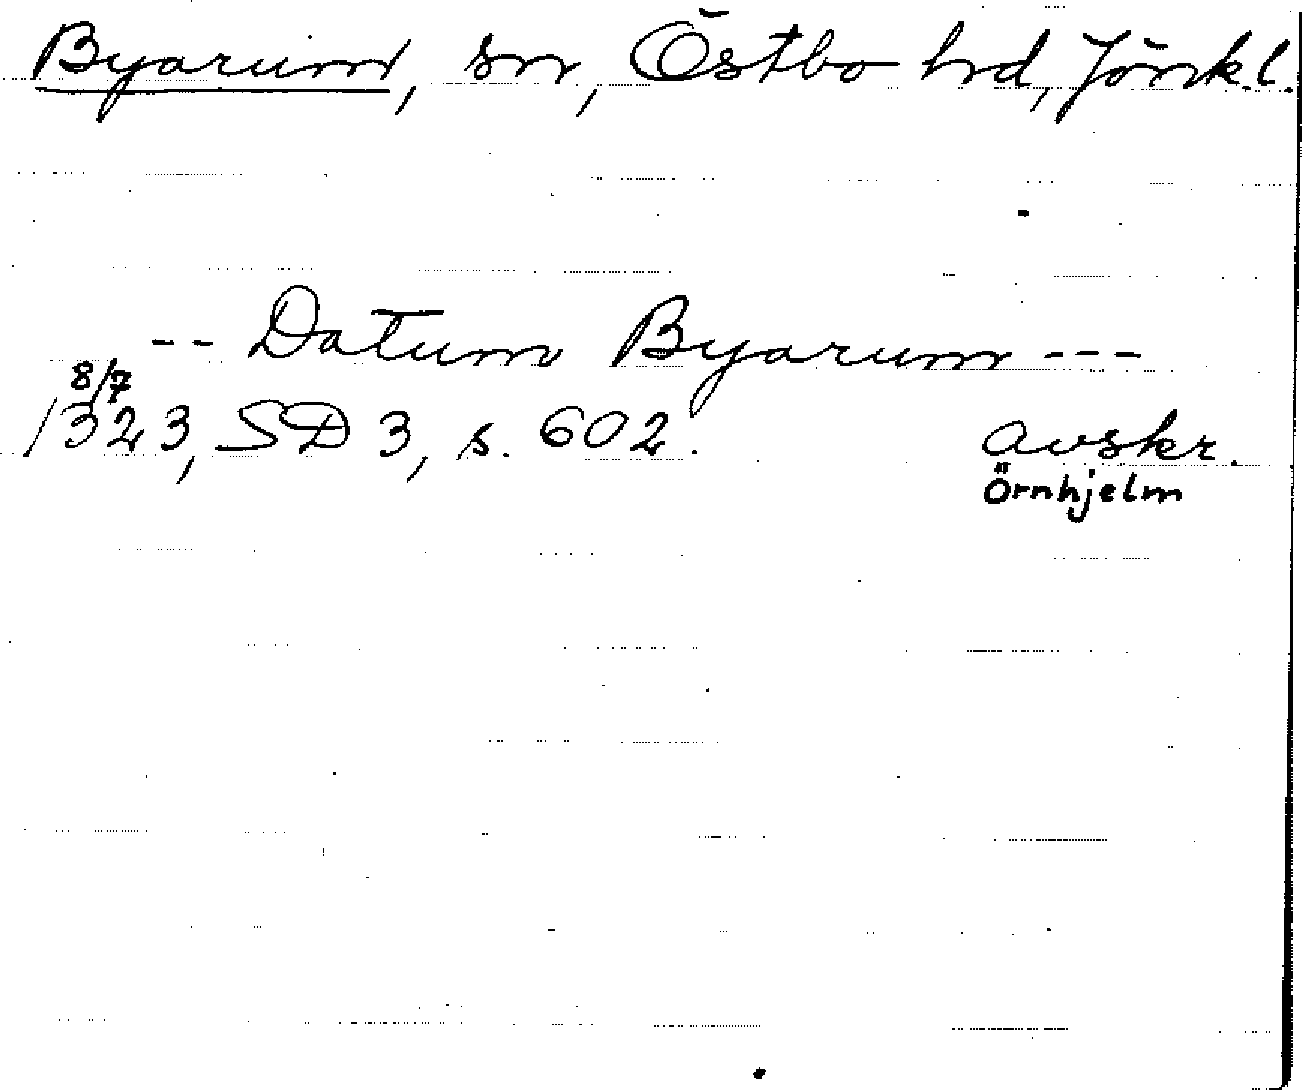 Byarum, sn, Östbo hrd, Jönk.l.
-- Datum Byarum ---
8/7
1323, SD 3, s. 602. avskr.
Örnhjelm